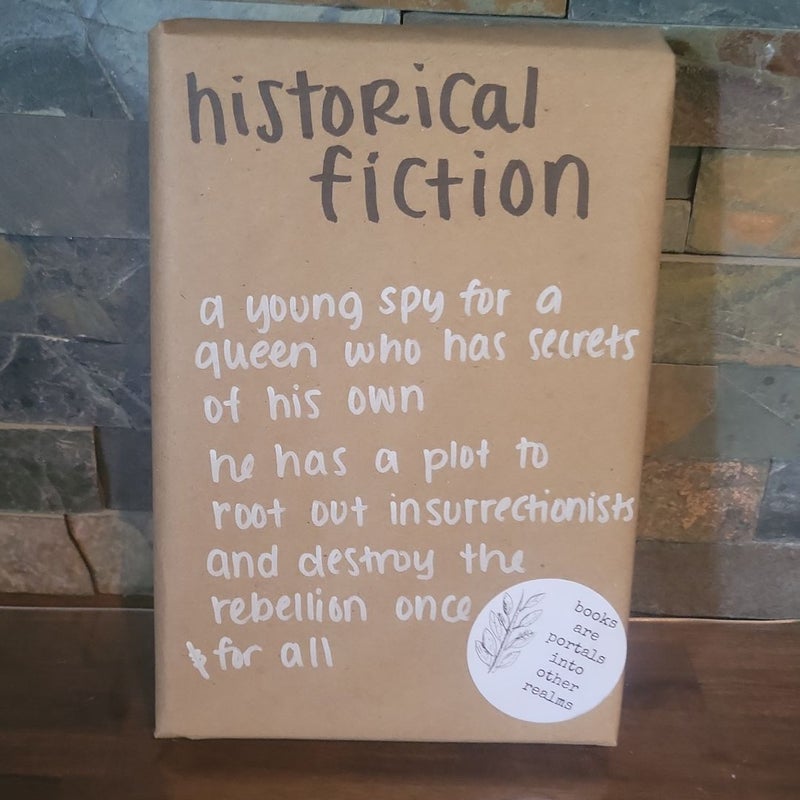 historical
fiction
a young spy for a
queen who has secrets
of his own
he has a plot to
root out insurrectionists
and destroy the
rebellion once
& for all
books
are
portals
into
other
realms